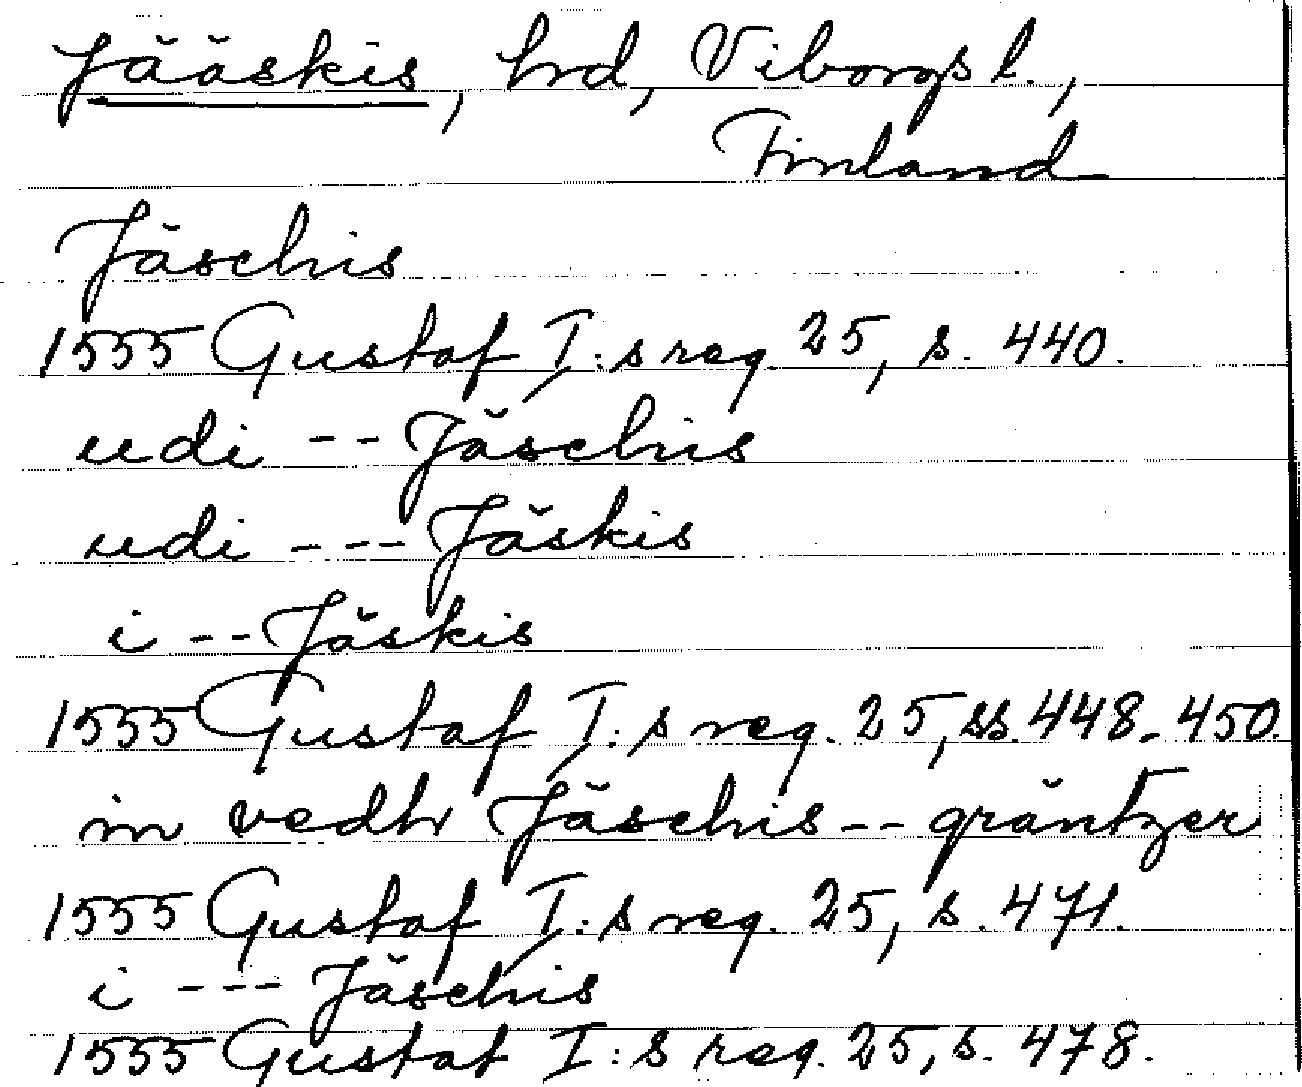 Jääskis, hrd, Viborgs l.,
Finland
Jäschis
1555 Gustaf I:s reg. 25, s. 440.
udi -- Jäschis
udi --- Jäskis
i -- Jäskis
1555 Gustaf I:s reg. 25, ss. 448-450.
in vedhr Jäschis -- gräntzer
1555 Gustaf I:s reg. 25, s. 471.
i --- Jäschis
1555 Gustaf I:s reg. 25, s. 478.